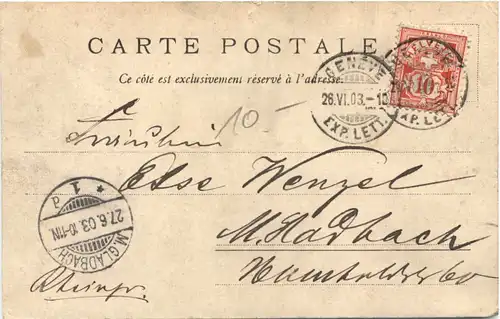 CARTE POSTALE
Ce côté est exclusivement réservé à l'adresse.
GENÈVE
26.VI.03.–10
EXP. LETT.
GENÈVE
EXP. LETT.
10
10.-
Fräulein
Else Wenzel
M. Gladbach
Humboldstr 60
Rheinpr.
M. GLADBACH
27.6.03.10-11N.
* 1 d